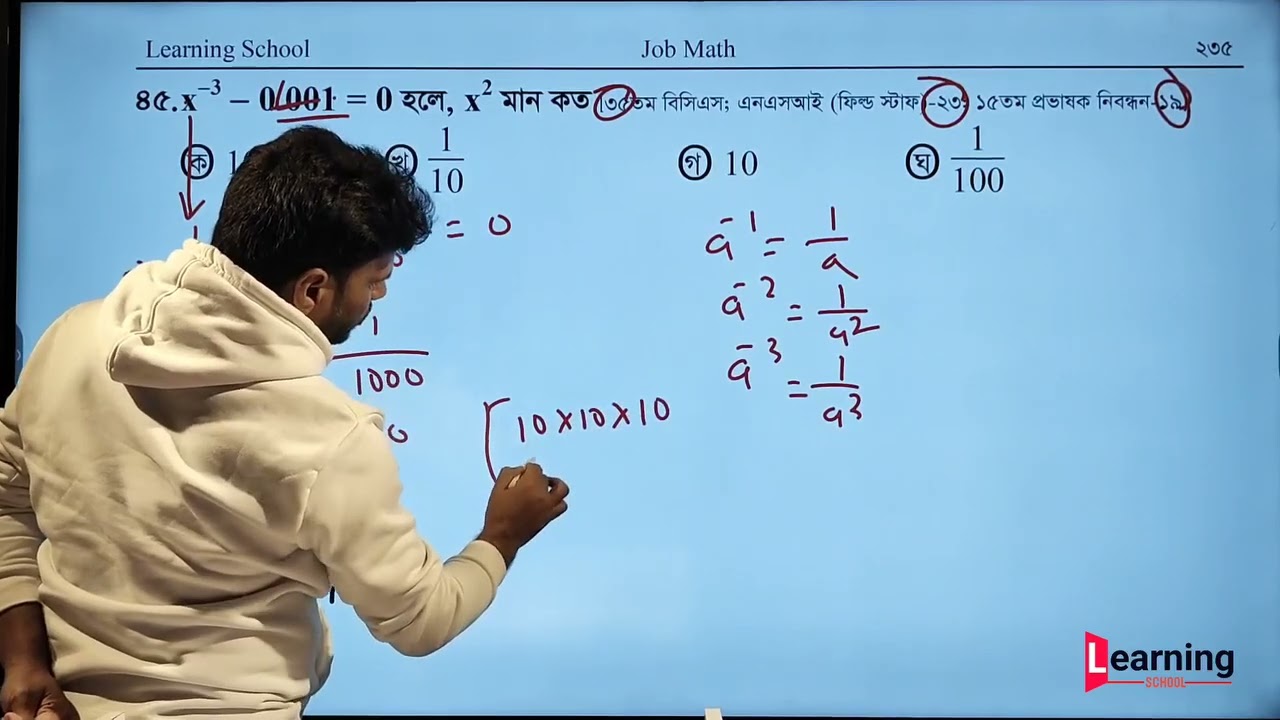 Learning School Job Math ২৩৫
৪৫. x⁻³ − 0.001 = 0 হলে, x² মান কত (৩৫তম বিসিএস; এনএসআই (ফিল্ড স্টাফ)-২৩; ১৫তম প্রভাষক নিবন্ধন-১৯)
ক 1 খ 1/10 গ 10 ঘ 1/100
= 0
1/1000
0
[10×10×10
a⁻¹ = 1/a
a⁻² = 1/a²
a⁻³ = 1/a³
Learning
SCHOOL